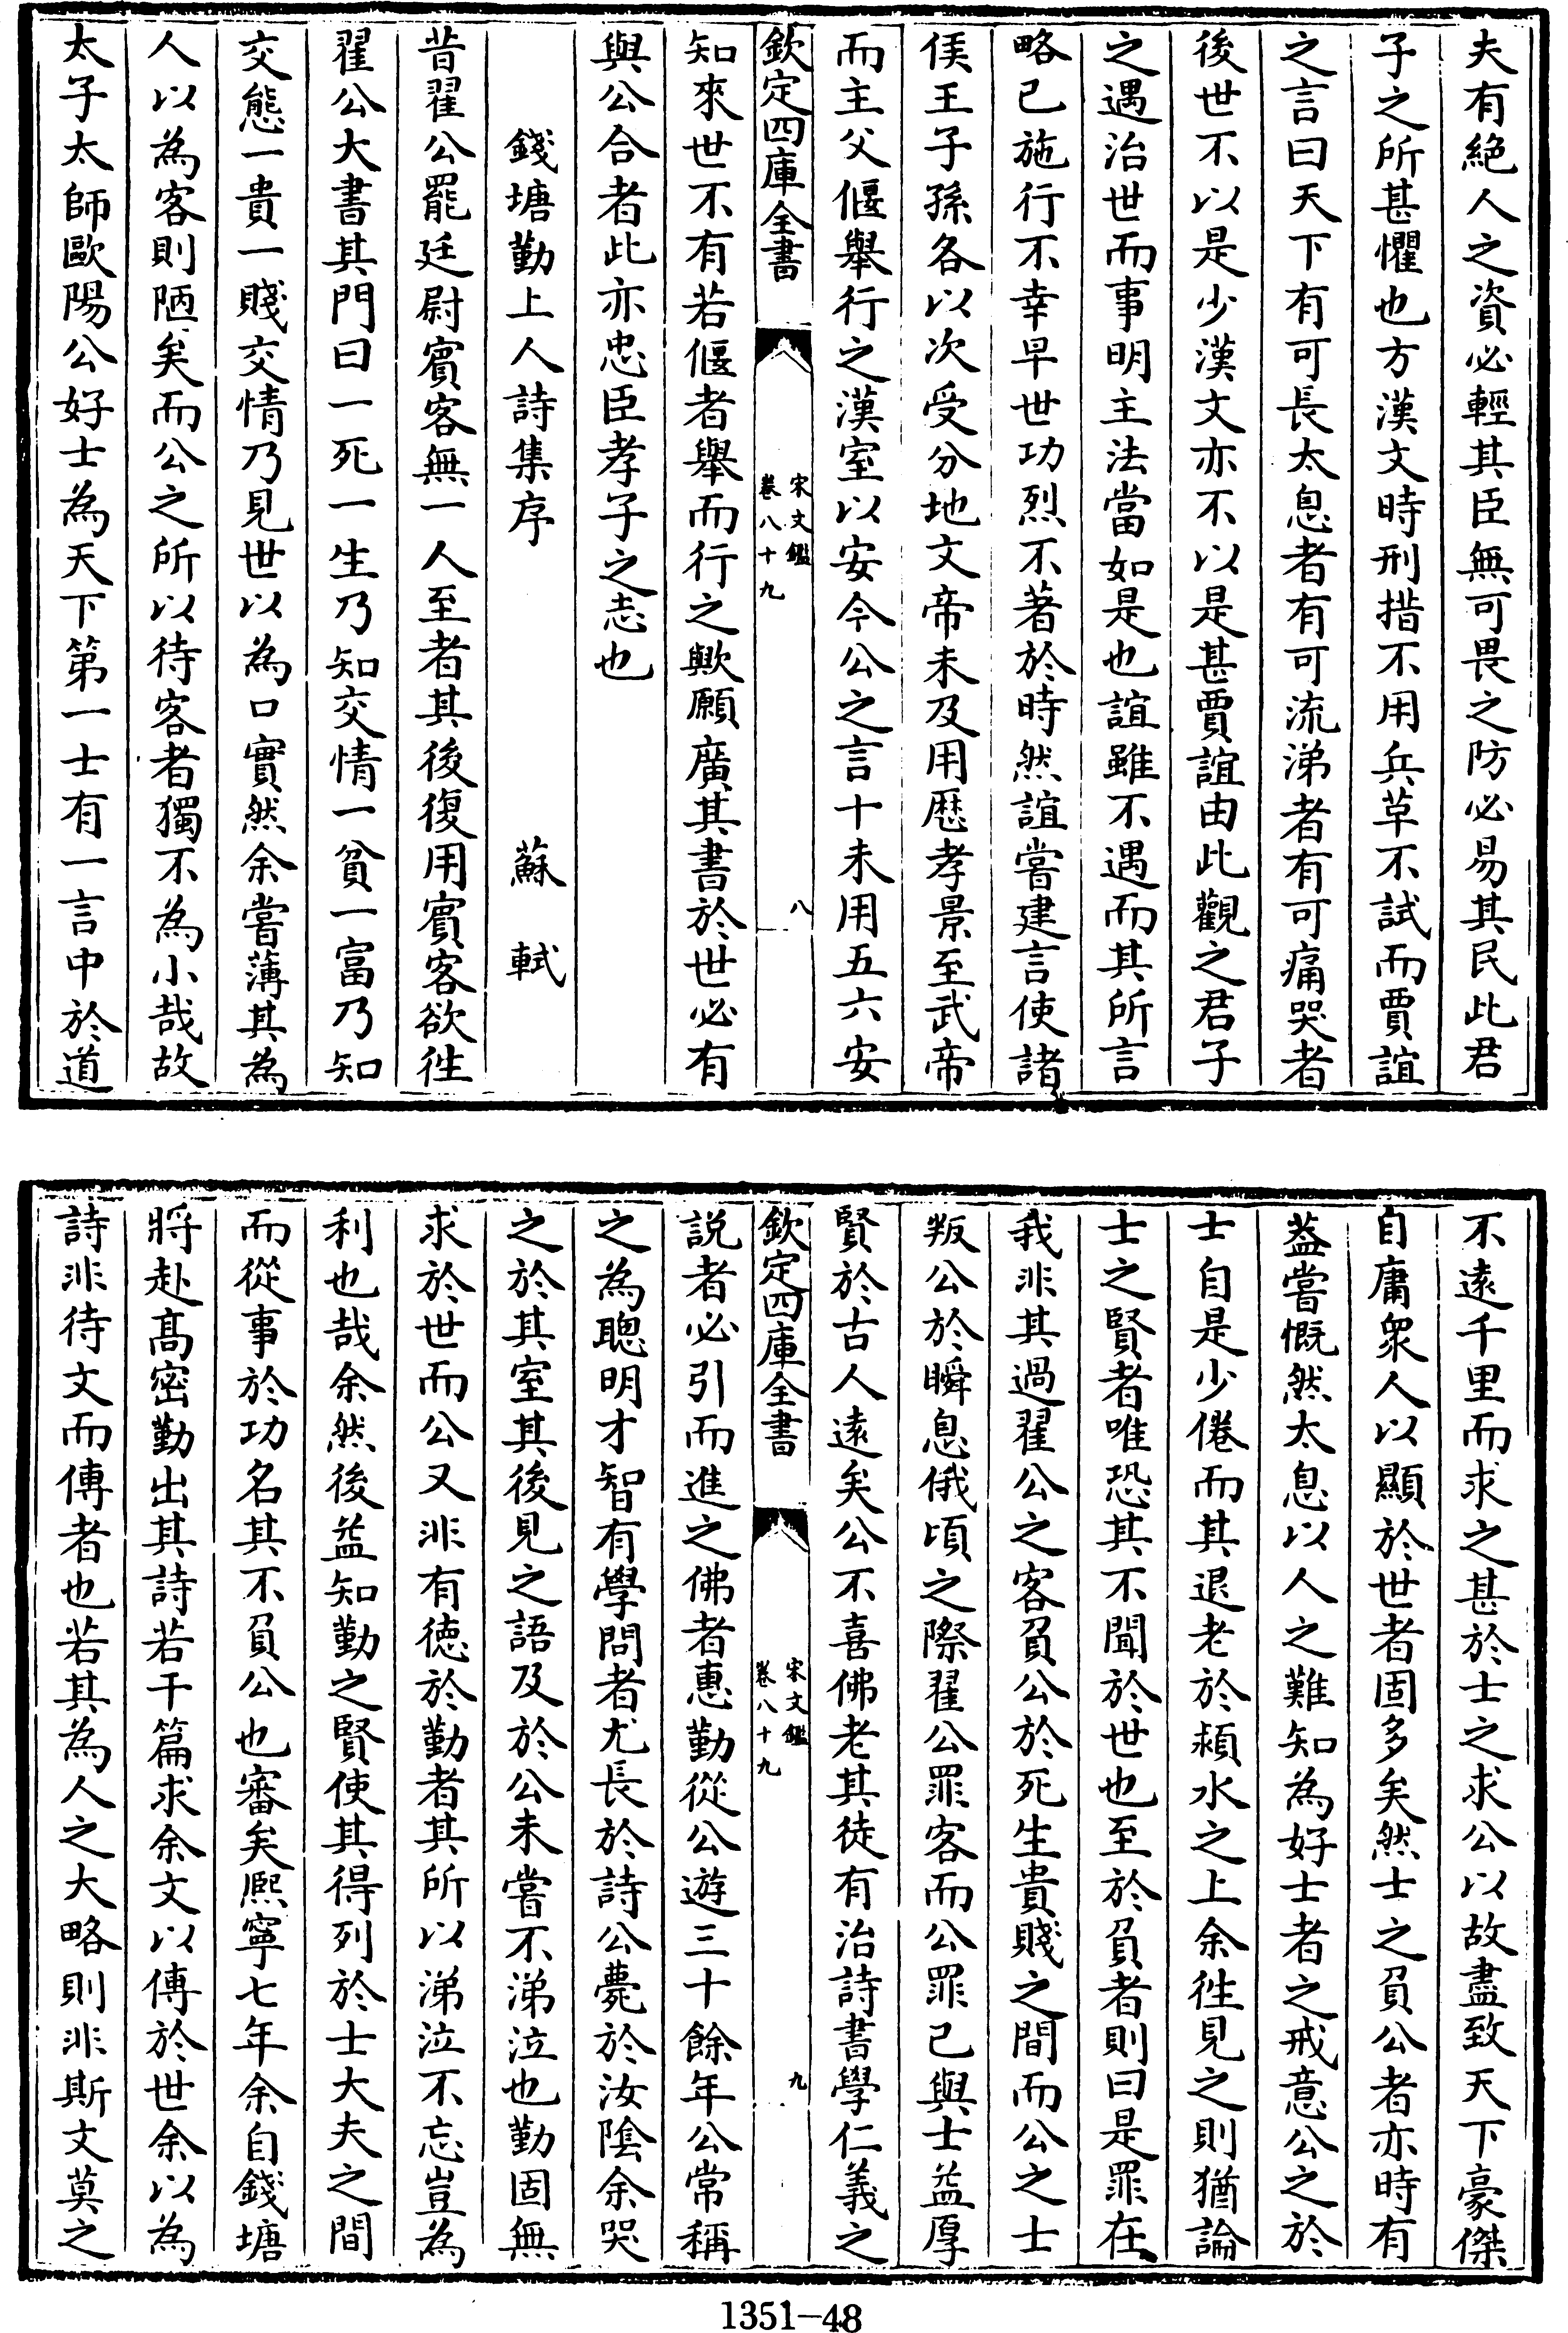 夫有絶人之資必輕其臣無可畏之防必易其民此君
子之所甚懼也方漢文時刑措不用兵革不試而賈誼
之言曰天下有可長太息者有可流涕者有可痛哭者
後世不以是少漢文亦不以是甚賈誼由此觀之君子
之遇治世而事明主法當如是也誼雖不遇而其所言
略已施行不幸早世功烈不著於時然誼嘗建言使諸
侯王子孫各以次受分地文帝未及用歴孝景至武帝
而主父偃舉行之漢室以安今公之言十未用五六安
欽定四庫全書
宋文鑑
卷八十九
八
知來世不有若偃者舉而行之歟願廣其書於世必有
與公合者此亦忠臣孝子之志也
錢塘勤上人詩集序 蘇軾
昔翟公罷廷尉賓客無一人至者其後復用賓客欲徃
翟公大書其門曰一死一生乃知交情一貧一富乃知
交態一貴一賤交情乃見世以為口實然余嘗薄其為
人以為客則陋矣而公之所以待客者獨不為小哉故
太子太師歐陽公好士為天下第一士有一言中於道
不遠千里而求之甚於士之求公以故盡致天下豪傑
自庸衆人以顯於世者固多矣然士之負公者亦時有
葢嘗慨然太息以人之難知為好士者之戒意公之於
士自是少倦而其退老於頴水之上余徃見之則猶論
士之賢者唯恐其不聞於世也至於負者則曰是罪在
我非其過翟公之客負公於死生貴賤之間而公之士
叛公於瞬息俄頃之際翟公罪客而公罪己與士益厚
賢於古人遠矣公不喜佛老其徒有治詩書學仁義之
欽定四庫全書
宋文鑑
卷八十九
九
説者必引而進之佛者惠勤從公遊三十餘年公常稱
之為聰明才智有學問者尤長於詩公薨於汝陰余哭
之於其室其後見之語及於公未嘗不涕泣也勤固無
求於世而公又非有徳於勤者其所以涕泣不忘豈為
利也哉余然後益知勤之賢使其得列於士大夫之間
而從事於功名其不負公也審矣熙寧七年余自錢塘
將赴髙密勤出其詩若干篇求余文以傳於世余以為
詩非待文而傳者也若其為人之大略則非斯文莫之
1351-48